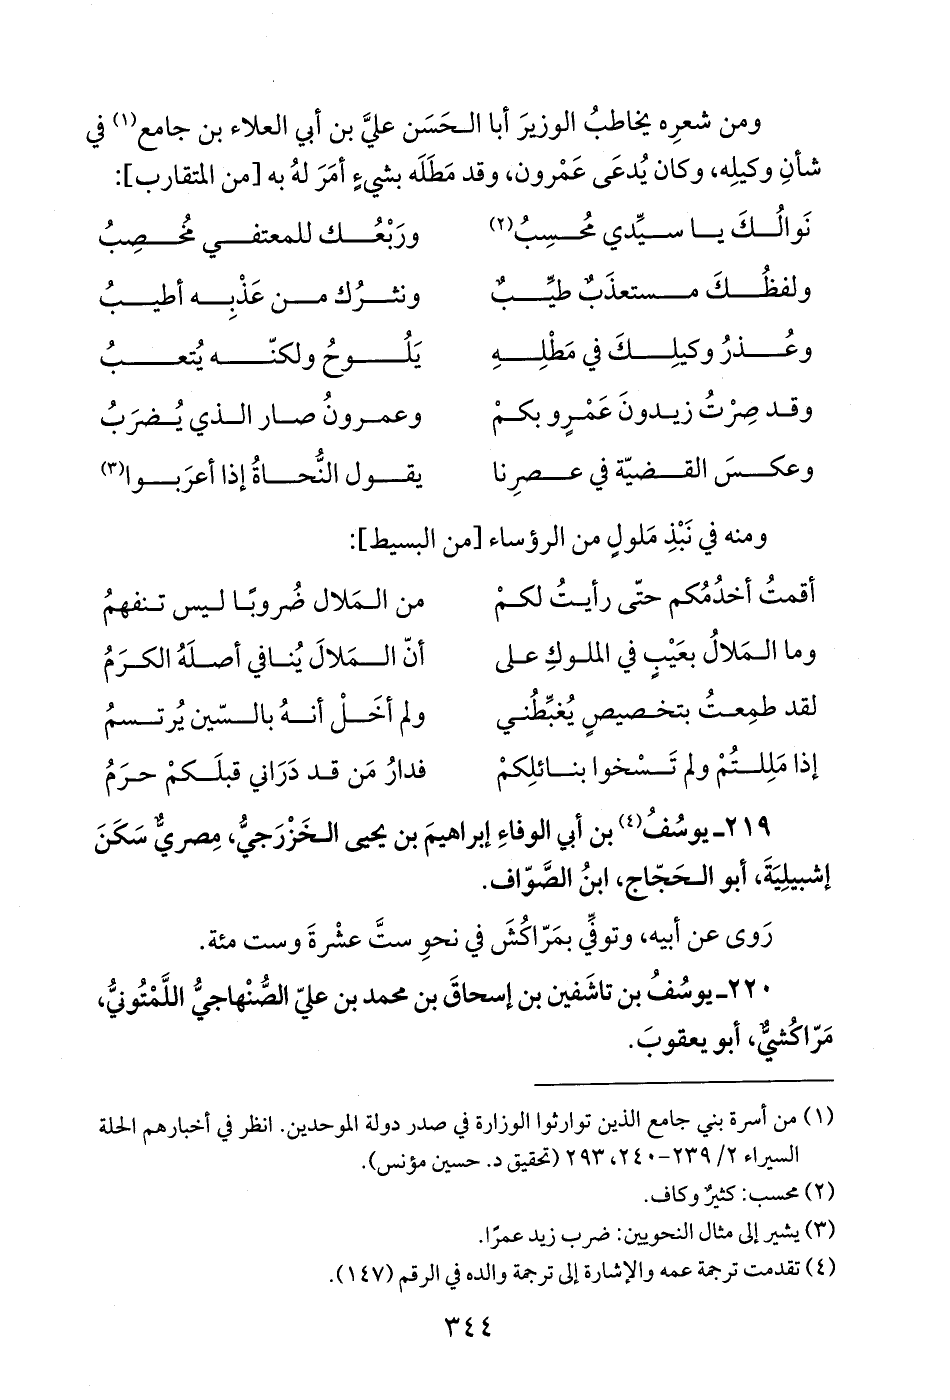 ومن شعرِه يخاطبُ الوزيرَ أبا الحَسَن عليَّ بن أبي العلاء بن جامع(١) في
شأنِ وكيلِه، وكان يُدعَى عَمْرون، وقد مَطَلَه بشيءٍ أمَرَ لهُ به [من المتقارب]:
نَوالُكَ يا سيِّدي مُحسِبُ(٢) ورَبْعُك للمعتفي مُخصِبُ
ولفظُكَ مستعذَبٌ طيِّبٌ ونثرُك من عَذْبِه أطيبُ
وعُذرُ وكيلِكَ في مَطْلِهِ يَلُوحُ ولكنّه يُتعبُ
وقد صِرْتُ زيدونَ عَمْرٍو بكمْ وعمرونُ صار الذي يُضرَبُ
وعكسَ القضيّة في عصرِنا يقول النُّحاةُ إذا أعرَبوا(٣)
ومنه في نَبْذِ مَلولٍ من الرؤساء [من البسيط]:
أقمتُ أخدُمُكم حتّى رأيتُ لكمْ من المَلال ضُروبًا ليس تنفهمُ
وما المَلالُ بعَيْبٍ في الملوكِ على أنّ المَلالَ يُنافي أصلَهُ الكرَمُ
لقد طمِعتُ بتخصيصٍ يُغبِّطُني ولم أخَلْ أنهُ بالسّين يُرتسمُ
إذا مَلِلتُمْ ولم تَسْخوا بنائلِكمْ فدارُ مَن قد دَرَاني قبلَكمْ حرَمُ
٢١٩ـ يوسُفُ(٤) بن أبي الوفاءِ إبراهيمَ بن يحيى الخَزْرَجيُّ، مِصريٌّ سَكَنَ
إشبيلِيَةَ، أبو الحَجّاج، ابنُ الصَّوّاف.
رَوى عن أبيه، وتوفِّي بمَرّاكُشَ في نحوِ ستَّ عشْرةَ وست مئة.
٢٢٠ـ يوسُفُ بن تاشَفين بن إسحاقَ بن محمد بن عليّ الصُّنْهاجيُّ اللَّمْتُونيُّ،
مَرّاكُشيٌّ، أبو يعقوبَ.
(١) من أسرة بني جامع الذين توارثوا الوزارة في صدر دولة الموحدين. انظر في أخبارهم الحلة
السيراء ٢/ ٢٣٩-٢٤٠، ٢٩٣ (تحقيق د. حسين مؤنس).
(٢) محسب: كثيرٌ وكاف.
(٣) يشير إلى مثال النحويين: ضرب زيد عمرًا.
(٤) تقدمت ترجمة عمه والإشارة إلى ترجمة والده في الرقم (١٤٧).
٣٤٤